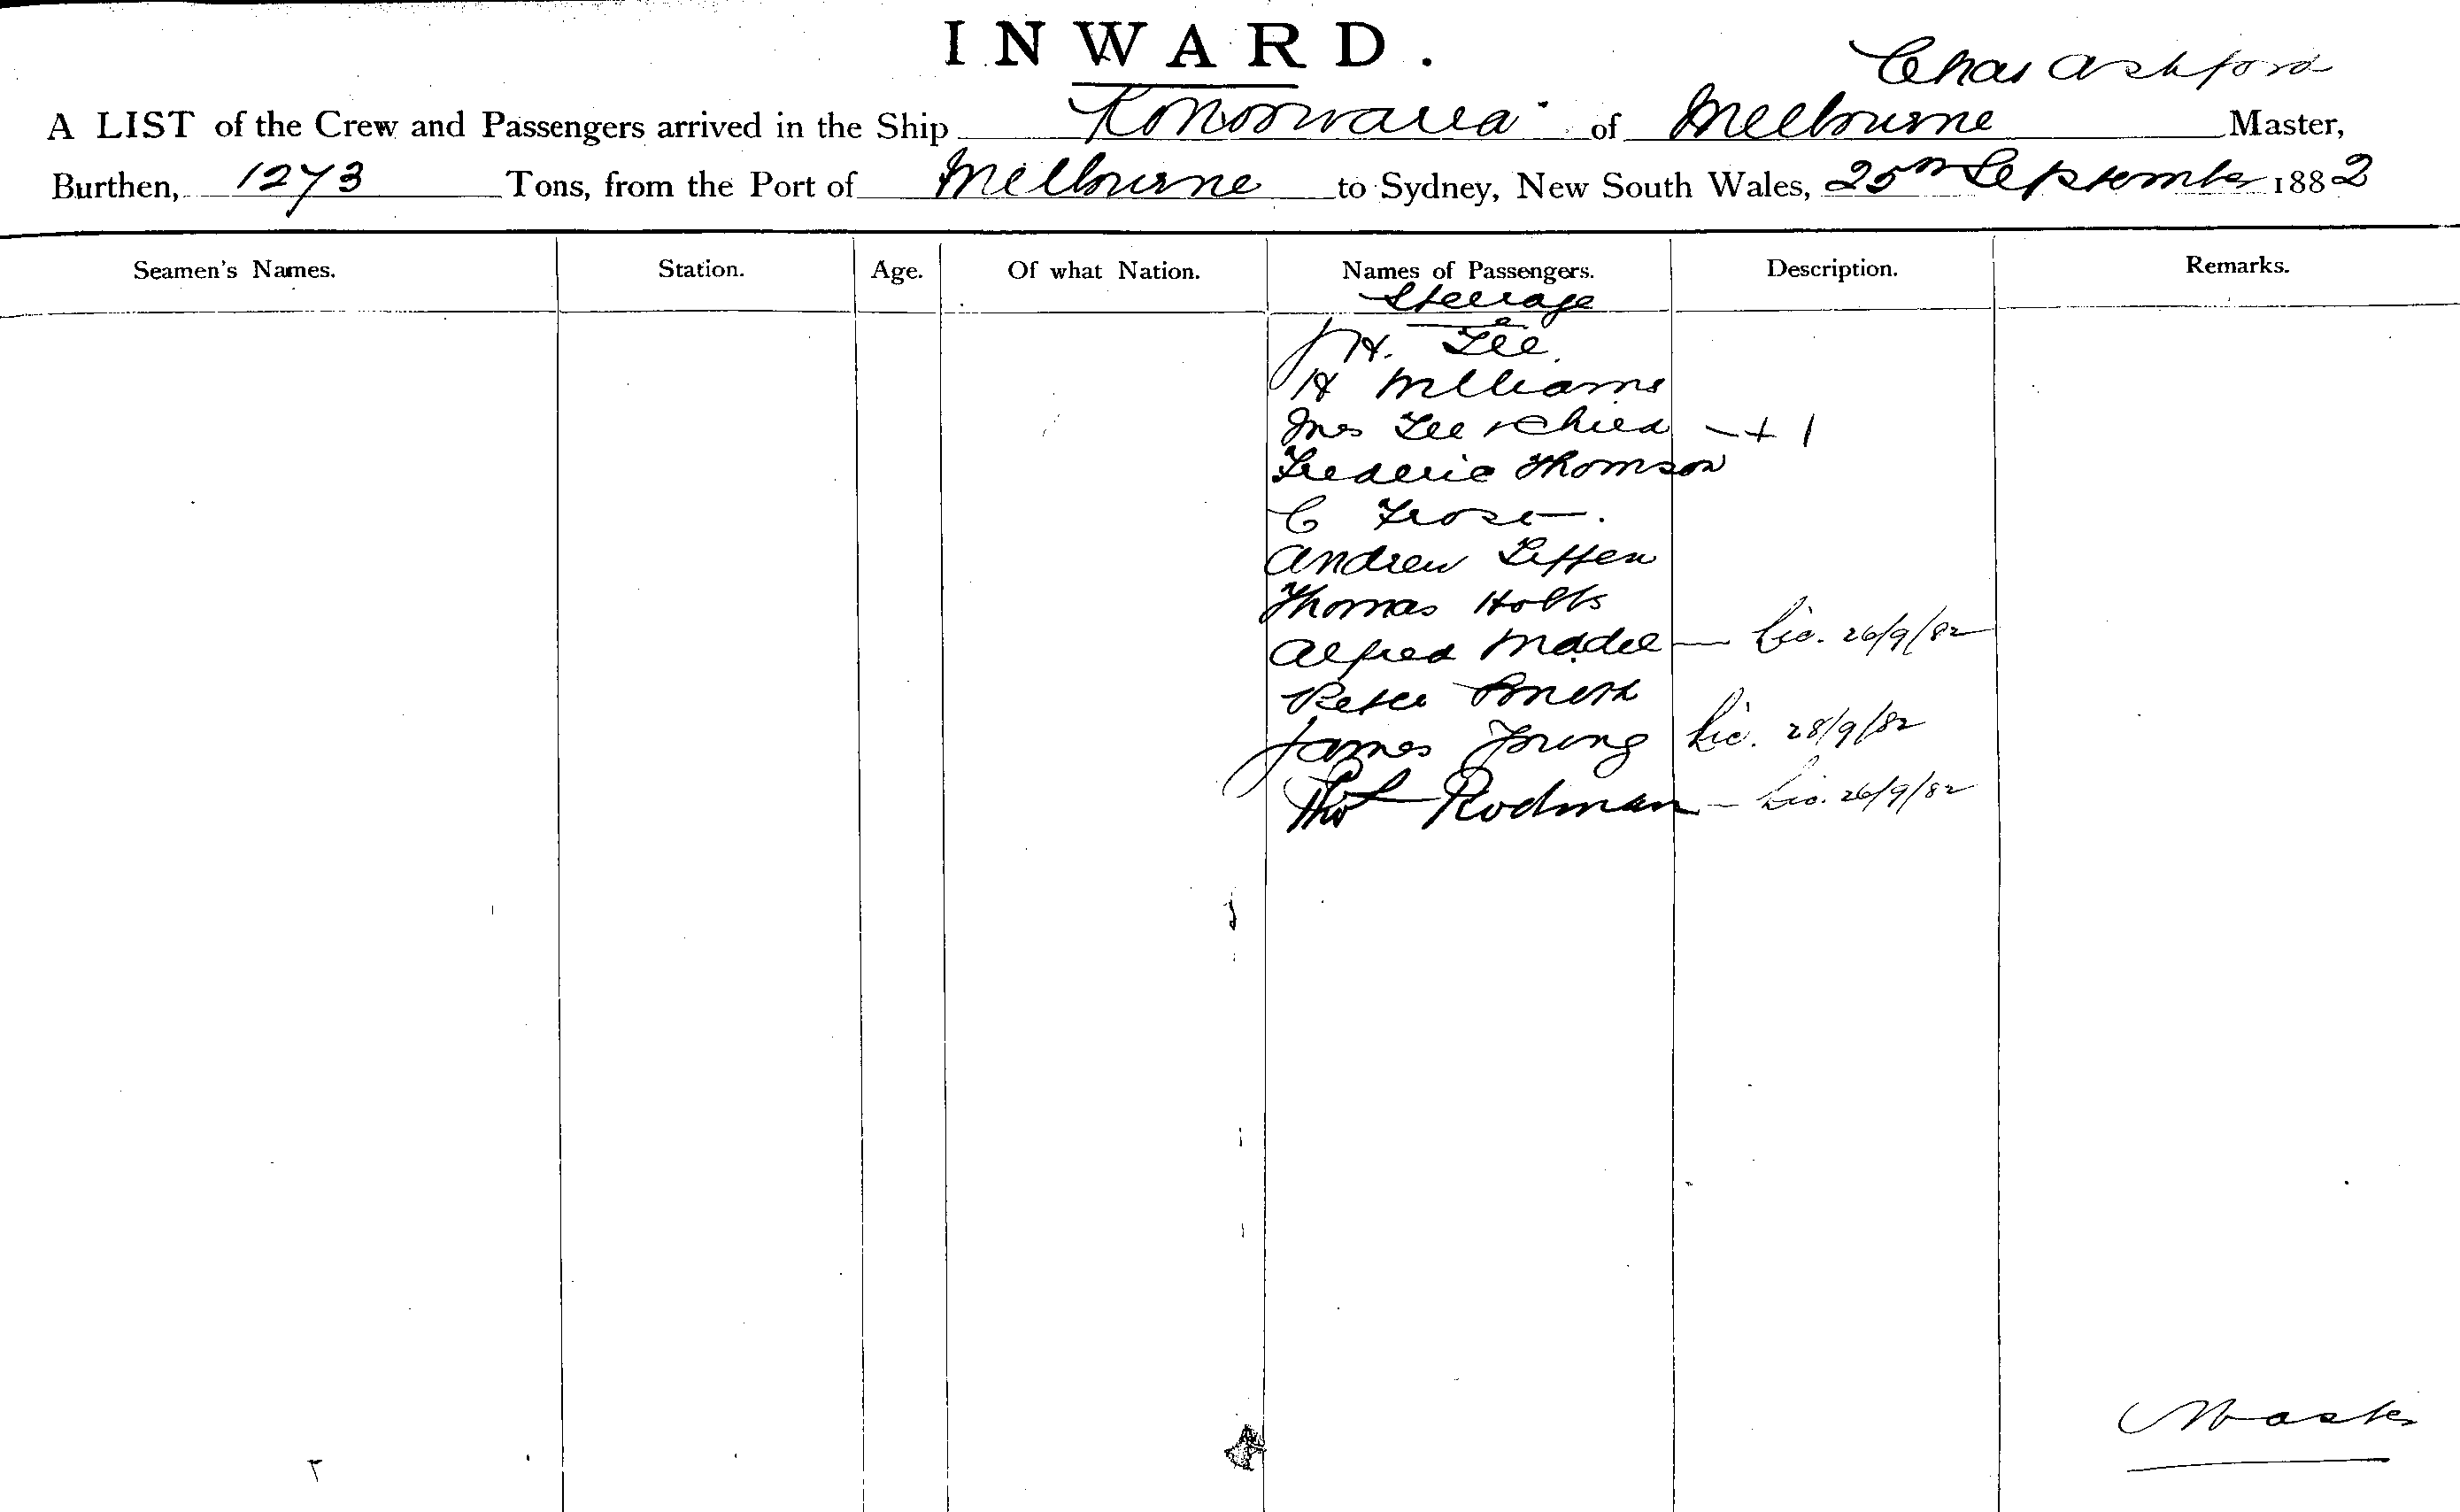 INWARD.
Chas Ashford
A LIST of the Crew and Passengers arrived in the Ship Konoowarra of Melbourne Master,
Burthen, 1273 Tons, from the Port of Melbourne to Sydney, New South Wales, 25th September 1882
Seamen's Names. Station. Age. Of what Nation. Names of Passengers. Description. Remarks.
Steerage
J H. Lee
H Williams
Mrs Lee & Child - + 1
Frederic Thomson
C Frost.
Andrew
Thomas Hobbs
Alfred — 26/9/82
Peter Smith
James Young 28/9/82
Thos Rodman — 26/9/82
Master